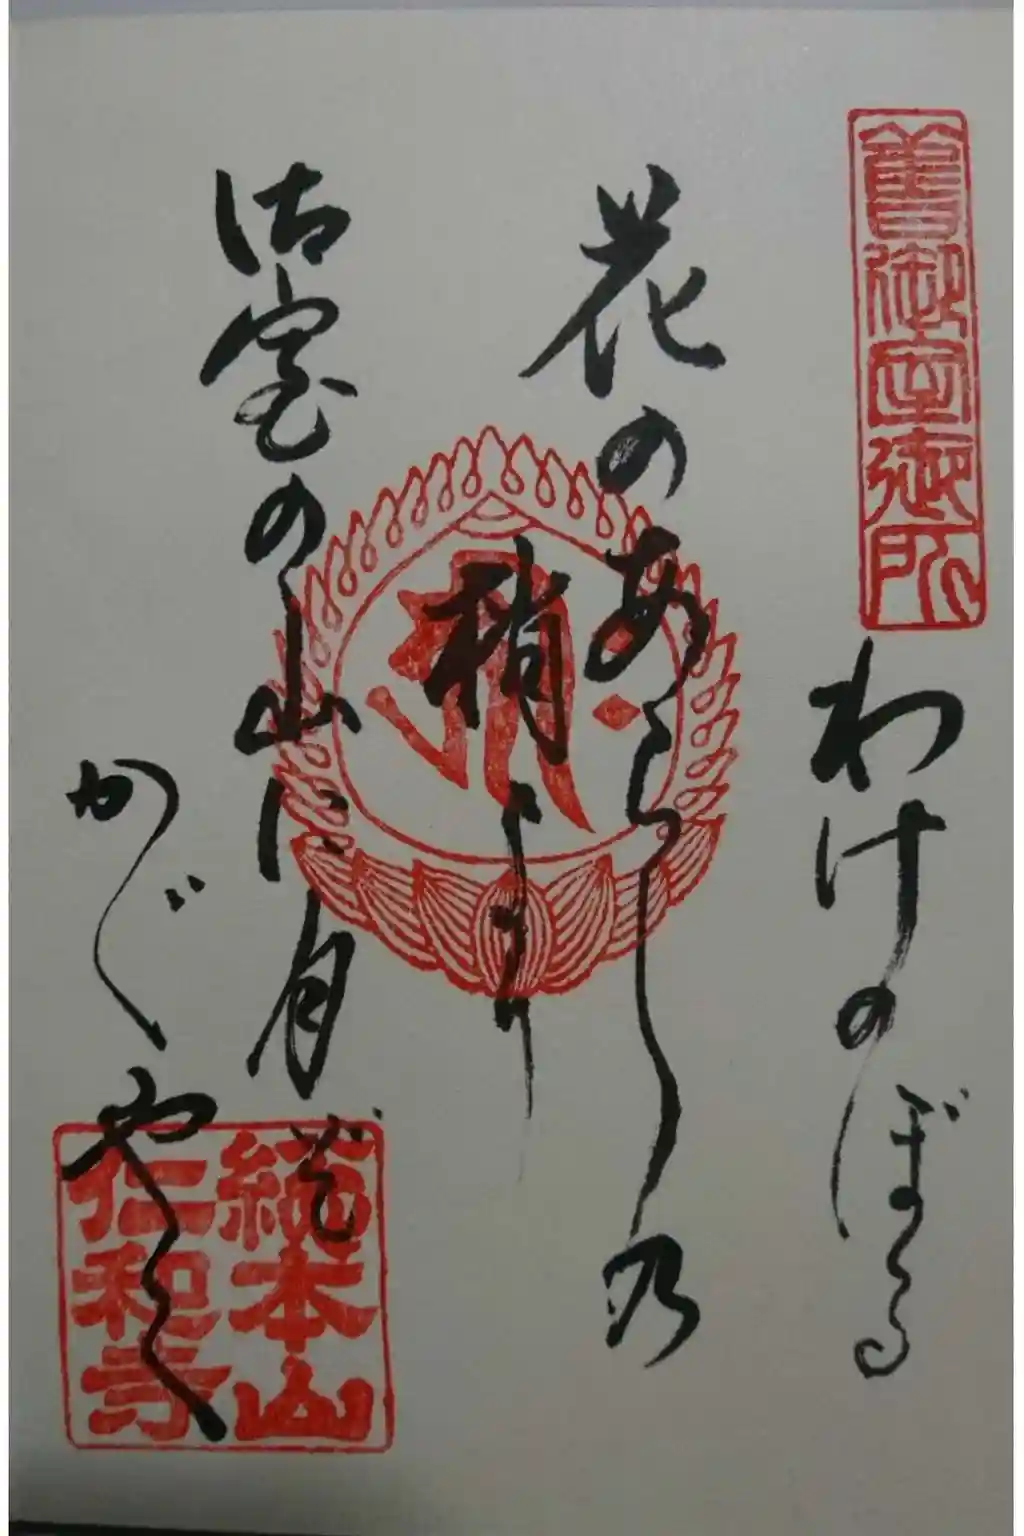 舊御室御所
わけのぼる
花のあらしの
梢より
御室の山に月ぞ
かゞやく
總本山
仁和寺